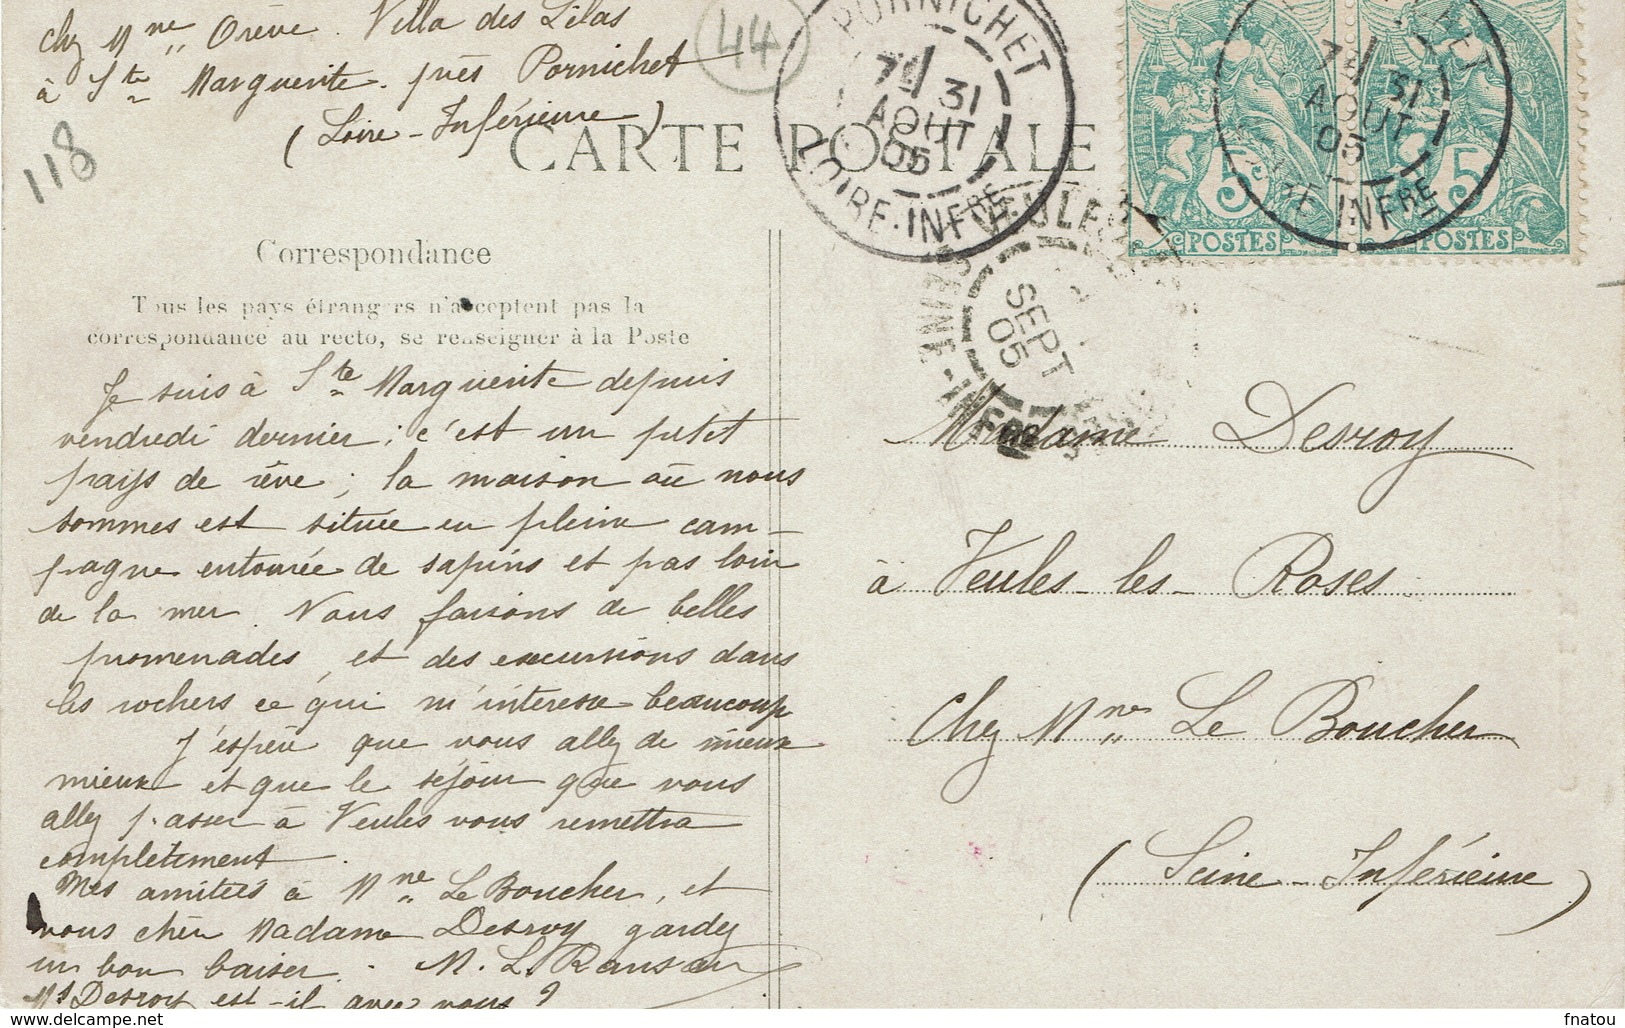 chez Mme Orève. Villa des Lilas
à Ste Marguerite. près Pornichet
(Loire-Inférieure)
44
118
CARTE POSTALE
PORNICHET
7E 31
AOUT
05
LOIRE-INFRE
7E 31
AOUT
05
INFRE
5
POSTES
5
POSTES
VEULES
SEPT
05
SEINE-INFRE
Correspondance
Tous les pays étrangers n'acceptent pas la
correspondance au recto, se renseigner à la Poste
Je suis à Ste Marguerite depuis
vendredi dernier ; c'est un petit
pays de rêve ; la maison où nous
sommes est située en pleine cam-
pagne entourée de sapins et pas loin
de la mer. Nous faisons de belles
promenades, et des excursions dans
les rochers ce qui m'intéresse beaucoup
J'espère que vous allez de mieux
mieux et que le séjour que vous
allez passer à Veules vous remettra
complètement.
Mes amitiés à Mme Le Boucher, et
vous chère Madame Desroy gardez
un bon baiser. M. L.
Mr Desroy est-il avec vous ?
Madame Desroy
à Veules-les-Roses.
Chez Mme Le Boucher
(Seine-Inférieure)
fnatou
www.delcampe.net